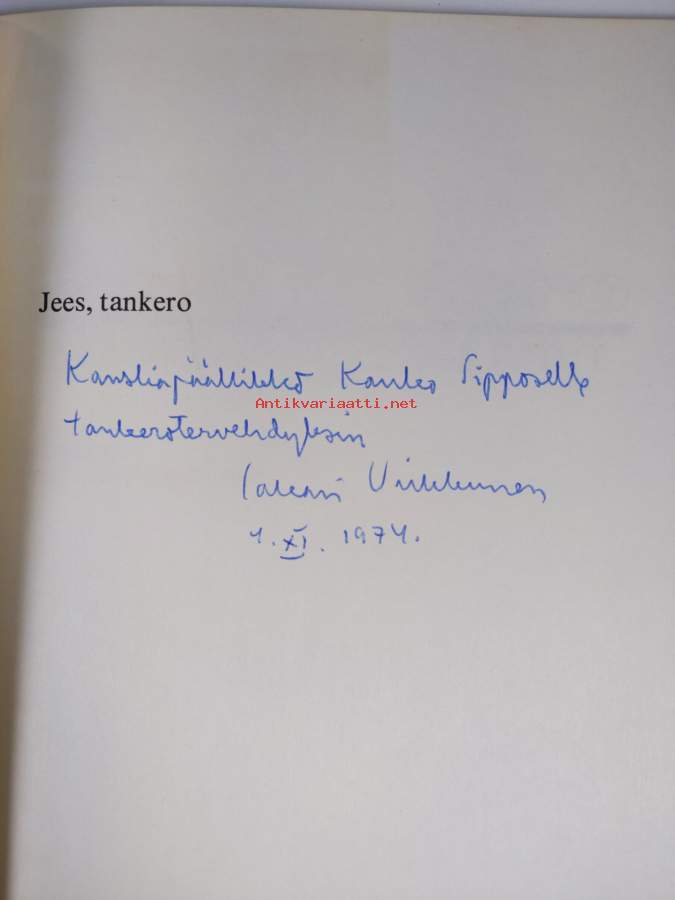 Jees, tankero
Kansliapäällikkö Kauko Sipposelle
Antikvariaatti.net
tankerotervehdyksin
Sakari Virkkunen
4. XI. 1974.